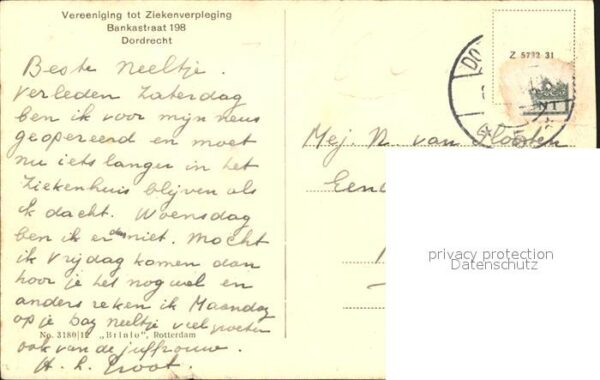 Vereeniging tot Ziekenverpleging
Bankastraat 198
Dordrecht
Beste Neeltje.
Verleden Zaterdag
ben ik voor mijn neus
geopereerd en moet
nu iets langer in het
Ziekenhuis blijven als
ik dacht. Woensdag
ben ik er dus niet. Mocht
ik Vrijdag komen dan
hoor je het nog wel en
anders reken ik Maandag
op je Dag Neeltje veel groeten
No. 3180/12 „Brinio", Rotterdam
ook van de juffrouw.
H. L. Groot.
Z 5792 31
DO
Mej. N. van
privacy protection
Datenschutz